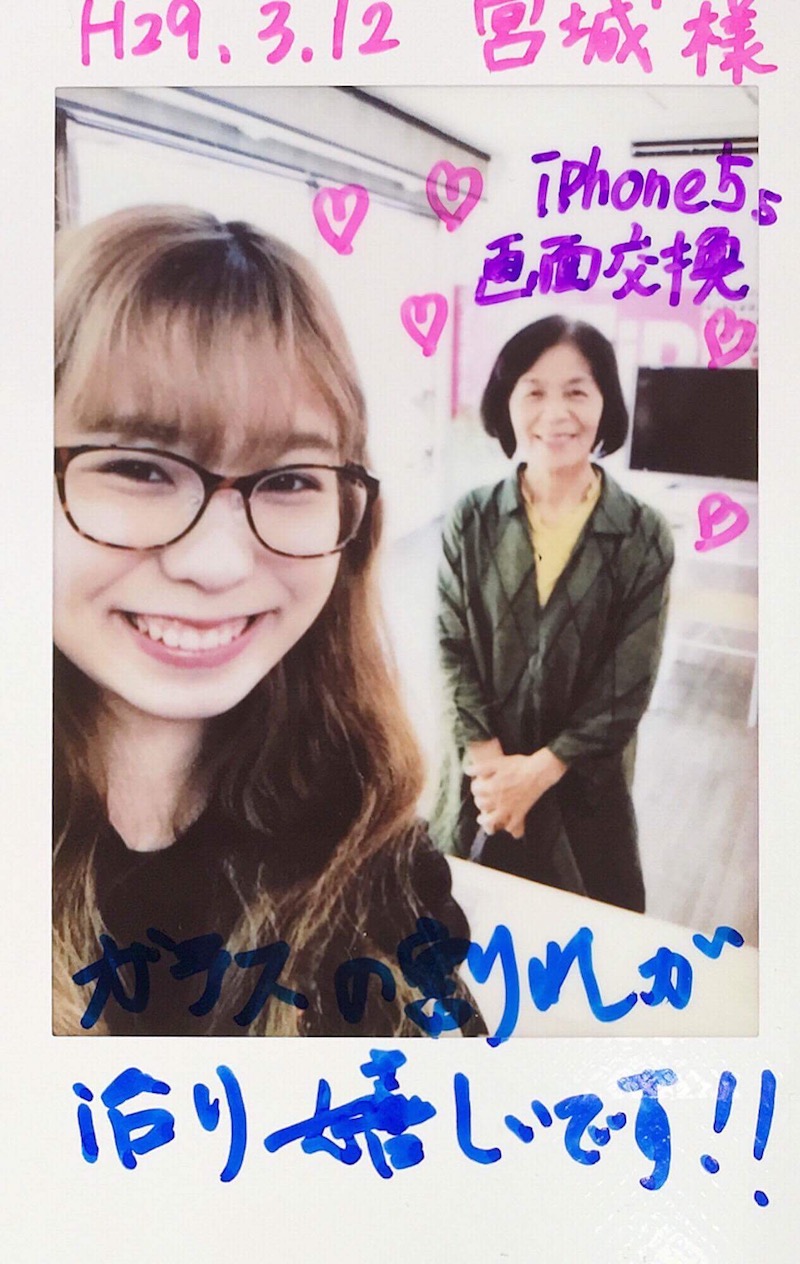 H29.3.12 宮城様
iPhone5s
画面交換
ガラスの割れが
治り嬉しいです!!